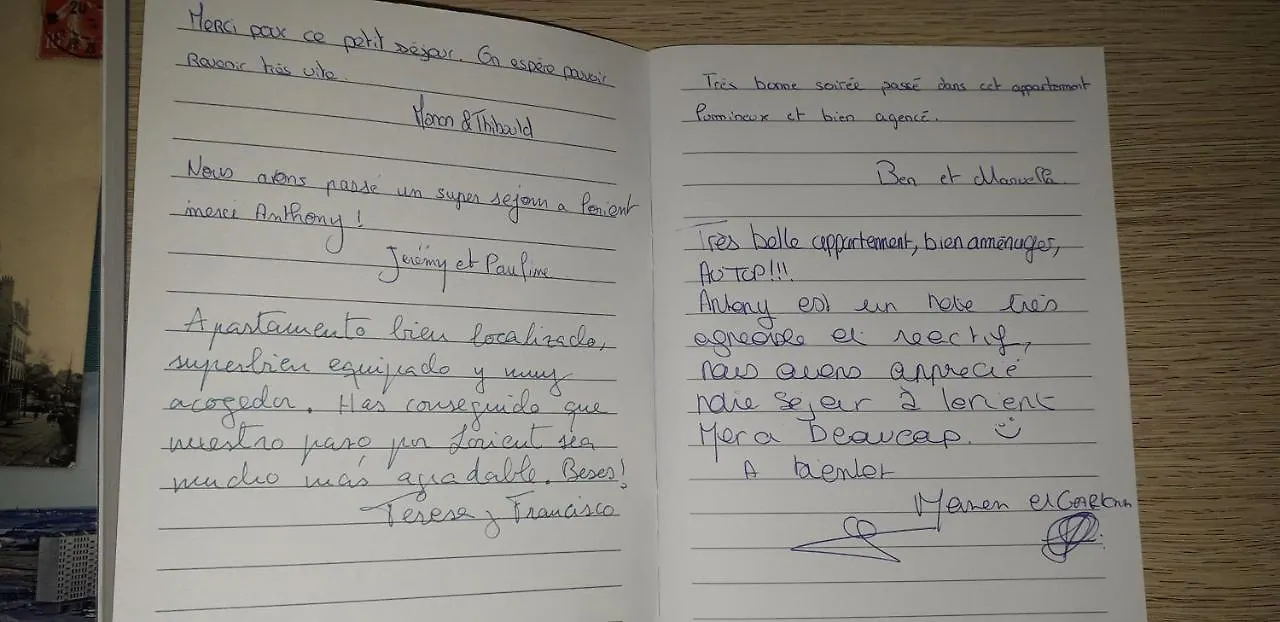 Merci pour ce petit séjour. On espère pouvoir
Revenir très vite.
Manon & Thibauld
Nous avons passé un super sejour a Lorient
merci Anthony !
Jérémy et Pauline
Apartamento bien localizado,
superbien equipado y muy
acogedor. Has conseguido que
nuestro paso por Lorient sea
mucho más agradable. Besos!
Teresa y Francisco
Très bonne soirée passé dans cet appartement
lumineux et bien agencé.
Ben et Manuella
Très belle appartement, bien aménages,
AU TOP!!!
Antony est un hote très
agreable et reactif,
nous avons apprecié
notre sejour à lorient
Merci beaucoup. ☺
A bientot
Manon et